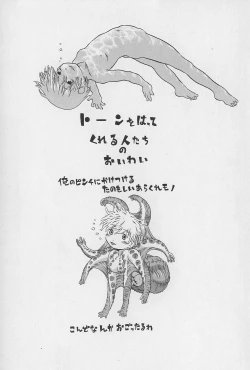 トーンをはって
くれる人たち
の
おいわい
俺のピンチにかけつける
たのもしいあらくれも!
こんどなんか おごったるわ